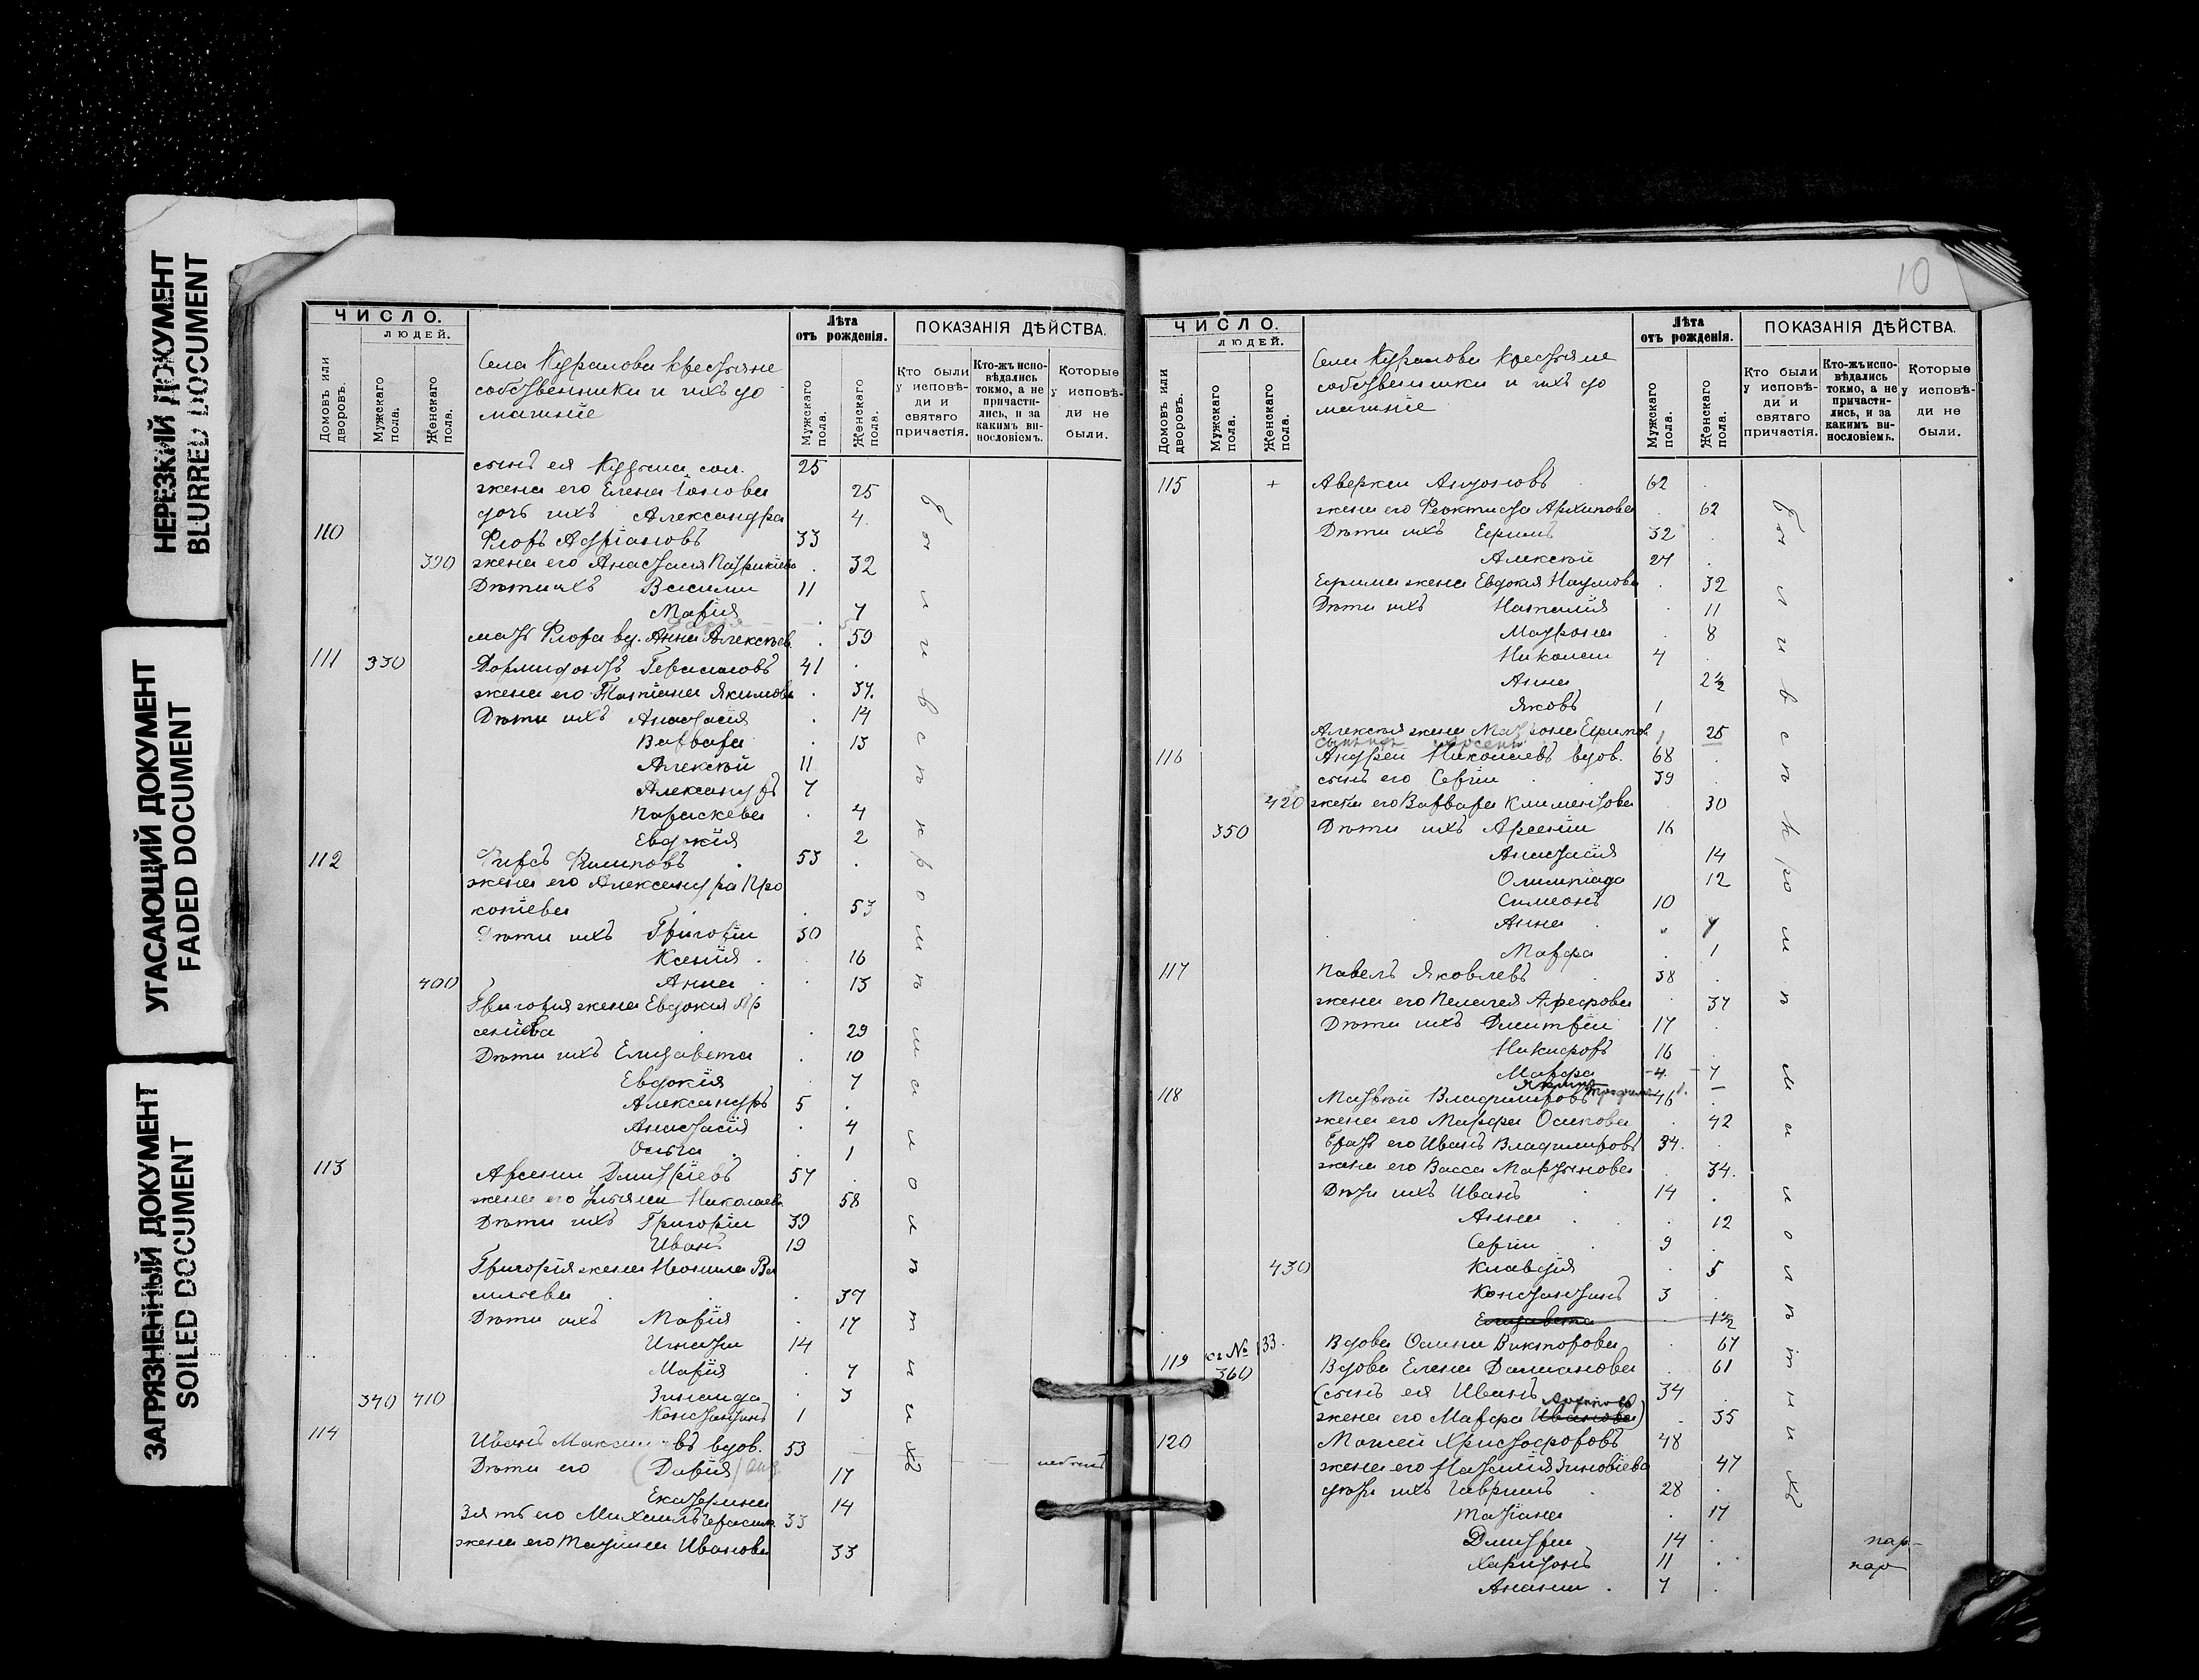 НЕРЕЗКИЙ ДОКУМЕНТ
BLURRED DOCUMENT
УГАСАЮЩИЙ ДОКУМЕНТ
FADED DOCUMENT
ЗАГРЯЗНЕННЫЙ ДОКУМЕНТ
SOILED DOCUMENT
ЧИСЛО.
ЛЮДЕЙ.
Домовъ или дворовъ.
Мужскаго пола.
Женскаго пола.
Села Курапова крестьяне
собственники и ихъ до
машніе
Лѣта
отъ рожденія.
Мужскаго пола.
Женскаго пола.
ПОКАЗАНІЯ ДѢЙСТВА.
Кто были у исповѣди и святаго причастія.
Кто-жъ исповѣдались токмо, а не причастились, и за какимъ винословіемъ.
Которые у исповѣди не были.
сынъ ея Кузьма сол. 25
жена его Елена Іонова 25
дочь ихъ Александра 4
110 Флоръ Адріановъ 33
390 жена его Анастасія Патрикіева 32
Дѣти ихъ Василій 11
Марія 7
мать Флора вд. Анна Алексѣев. 59
111 330 Дормидонтъ Герасимовъ 41
жена его Татіана Якимова 37.
Дѣти ихъ Анастасія 14
Варвара 13
Алексѣй 11
Александръ 7
Параскева 4
Евдокія 2
112 Фирсъ Филиповъ 53
жена его Александра Про
копіева 53
Дѣти ихъ Григорій 30
Ксенія 16
400 Анна 13
Григорія жена Евдокія Ар
сеніева 29
Дѣти ихъ Елизавета 10
Евдокія 7
Александръ 5
Анастасія 4
Ольга 1
113 Арсеній Дмитріевъ 57
жена его Ульяна Николаева 58
Дѣти ихъ Григорій 39
Иванъ 19
Григорія жена Неонила
37
Дѣти ихъ Марія 17
Игнатій 14
Марія 7
340 410 Зинаида 3
Константинъ 1
114 Иванъ вдов. 53
Дѣти его (Дарія) 17
Екатерина 14
Зять его Михаилъ Герасим. 33
жена его Татіана Иванова 33
10
ЧИСЛО.
ЛЮДЕЙ.
Домовъ или дворовъ.
Мужскаго пола.
Женскаго пола.
Села Курапова крестьяне
собственники и ихъ до
машніе
Лѣта
отъ рожденія.
Мужскаго пола.
Женскаго пола.
ПОКАЗАНІЯ ДѢЙСТВА.
Кто были у исповѣди и святаго причастія.
Кто-жъ исповѣдались токмо, а не причастились, и за какимъ винословіемъ.
Которые у исповѣди не были.
115 + Аверкій Антоновъ 62
жена его Феоктиста Архипова 62
Дѣти ихъ Ефимъ 32
Алексѣй 27
Ефима жена Евдокія Наумова 32
Дѣти ихъ Наталія 11
Матрона 8
Николай 4
Анна 2½
Яковъ 1
Алексѣя жена Матрона Ефимов. 25
116 Андрей Николаевъ вдов. 68
сынъ его Сергій 39
420 жена его Варвара Климентова 30
350 Дѣти ихъ Арсеній 16
Анастасія 14
Олимпіада 12
Симеонъ 10
Анна 7
Марфа 1
117 Павелъ Яковлевъ 38
жена его Пелагея Арефова 37
Дѣти ихъ Дмитрій 17
Никифоръ 16
Марфа 4 7
118 Матвѣй Владиміровъ 46
жена его Марфа Осипова 42
братъ его Иванъ Владиміровъ 34.
жена его Васса Мартынова 34.
Дѣти ихъ Иванъ 14
Анна 12
Сергій 9
430 Клавдія 5
Константинъ 3
Елизавета 1½
къ № 133. Вдова Викторова 67
119 360 Вдова Елена Даміанова 61
(сынъ ея Иванъ 34
жена его Марфа Иванова) 35
120 Моисей Христофоровъ 48
жена его Наталія Зиновіева 47
дѣти ихъ Гавріилъ 28
Татіана 17
Дмитрій 14
Харитонъ 11
Ананій 7